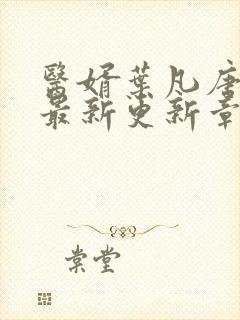 醫婿葉凡唐
最新更新章
棠堂